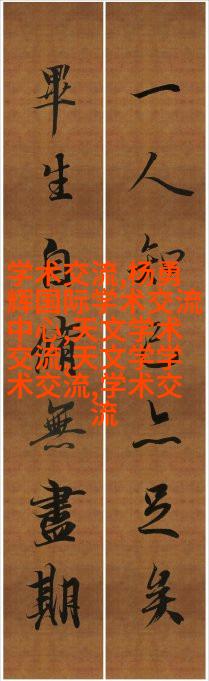 一人知己亦足矣
畢生自脩無盡期
学术交流,杨勇
辉国际学术交流
中心,天文学术
交流,天文学学
术交流,学术交
流